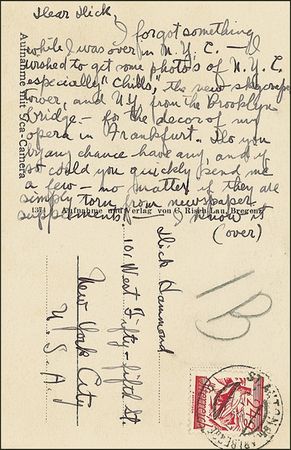 Dear Dick
I forgot something
while I was over in N.Y.C. — I
wished to get some photos of N.Y.C.
especially "Chills", the new skyscraper
tower, and NY from the Brooklyn
bridge — for the decor of my
opera in Frankfurt. Do you
by any chance have any, and if
so could you quickly send me
a few — no matter if they are
simply torn from newspaper
supplements. I know it
(over)
Aufnahme mit Ica-Camera
Aufnahme und Verlag von C. Risch-Lau, Bregenz
Dick Hammond
101 West Fifty-fifth St.
New York City
U.S.A.
1B